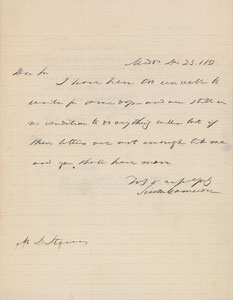 Dec 23. 1881
Dear Sir
I have been too unwell to
write for some days and am still in
no condition to do anything well but if
these letters are not enough take one
and you shall have more
Very respectfully
Simon Cameron